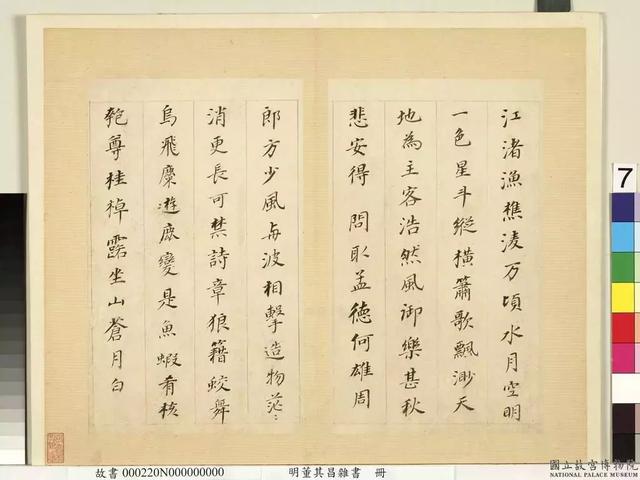 江渚漁樵淩万頃水月空明
一色星斗縱橫簫歌飄渺天
地為主客浩然風御樂甚秋
悲安得 問耶孟德何雄周
郎方少風与波相擊造物茫〻
消更長可禁詩章狼籍蛟舞
烏飛麋遊鹿變是魚蝦肴核
匏尊桂棹露坐山蒼月白
7
故書 000220N000000000 明董其昌雜書 冊
國立故宮博物院
NATIONAL PALACE MUSEUM